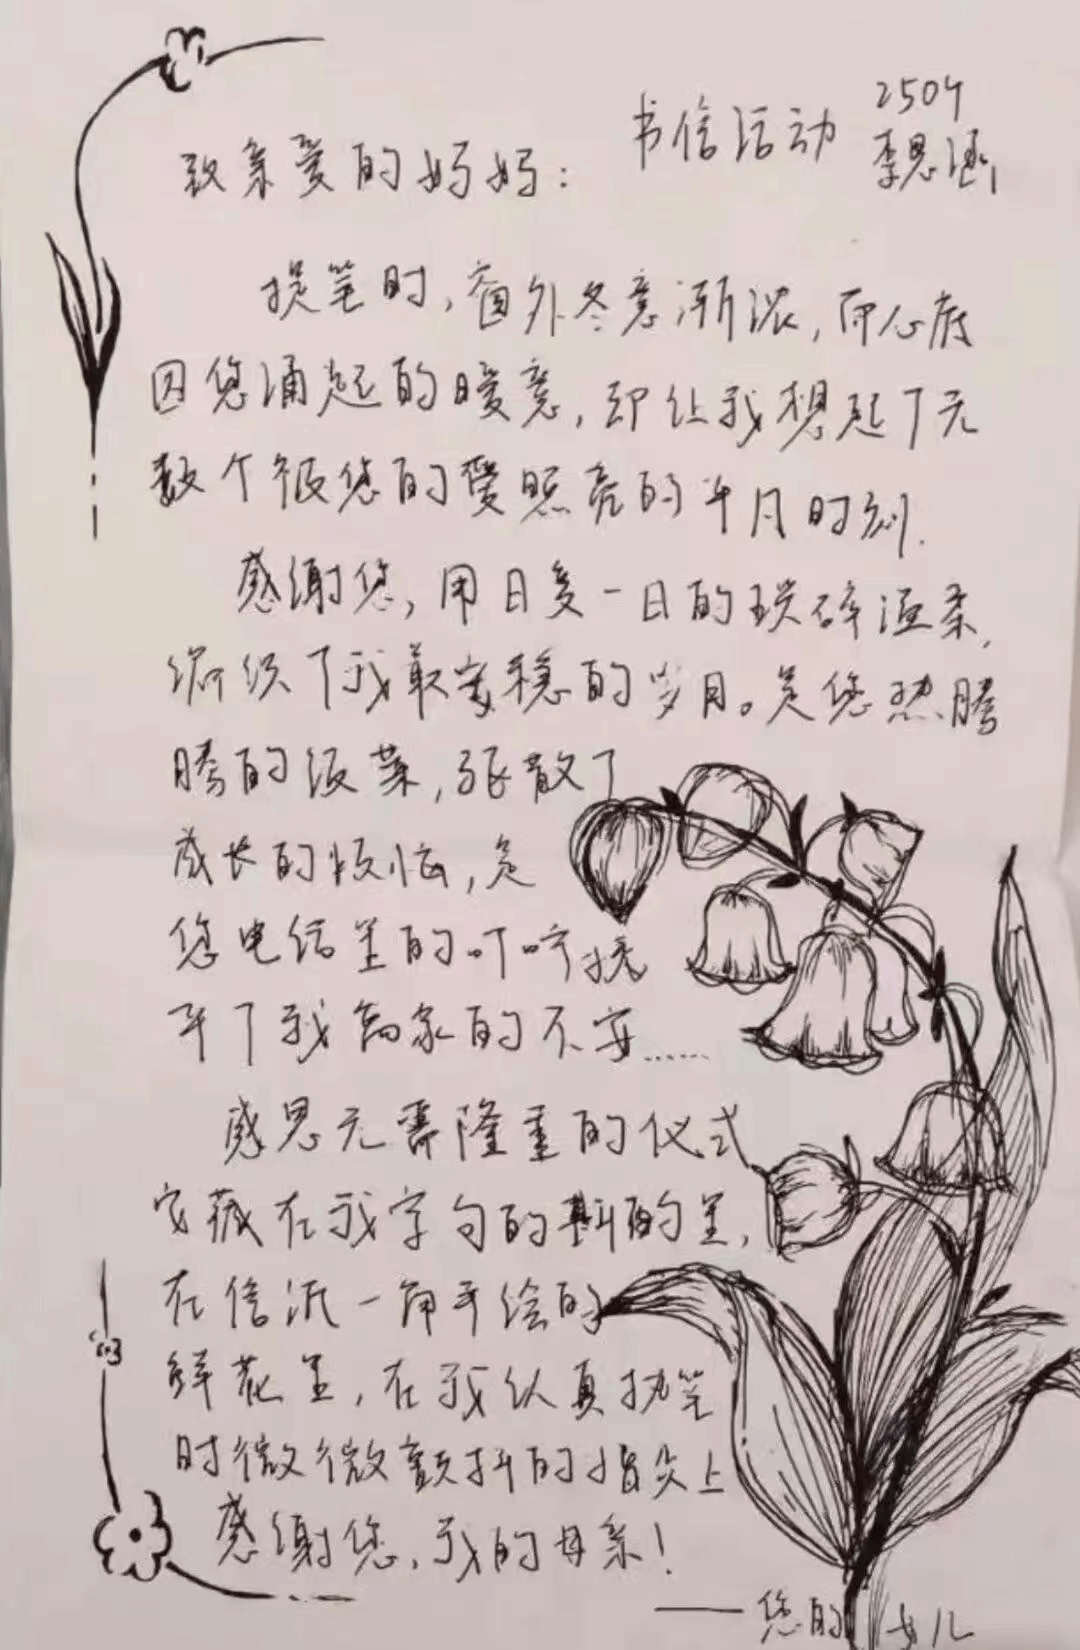 书信活动 2504
李思涵
致亲爱的妈妈：
提笔时，窗外冬意渐浓，而心底
因您涌起的暖意，却让我想起了无
数个被您的爱照亮的平凡时刻.
感谢您，用日复一日的琐碎温柔，
编织了我最安稳的岁月。是您热腾
腾的饭菜，驱散了
成长的烦恼，是
您电话里的叮咛抚
平了我离家的不安……
感恩无需隆重的仪式
它藏在我字句的斟酌里，
在信纸一角手绘的
鲜花里，在我认真执笔
时微微颤抖的指尖上
感谢您，我的母亲！
——您的女儿